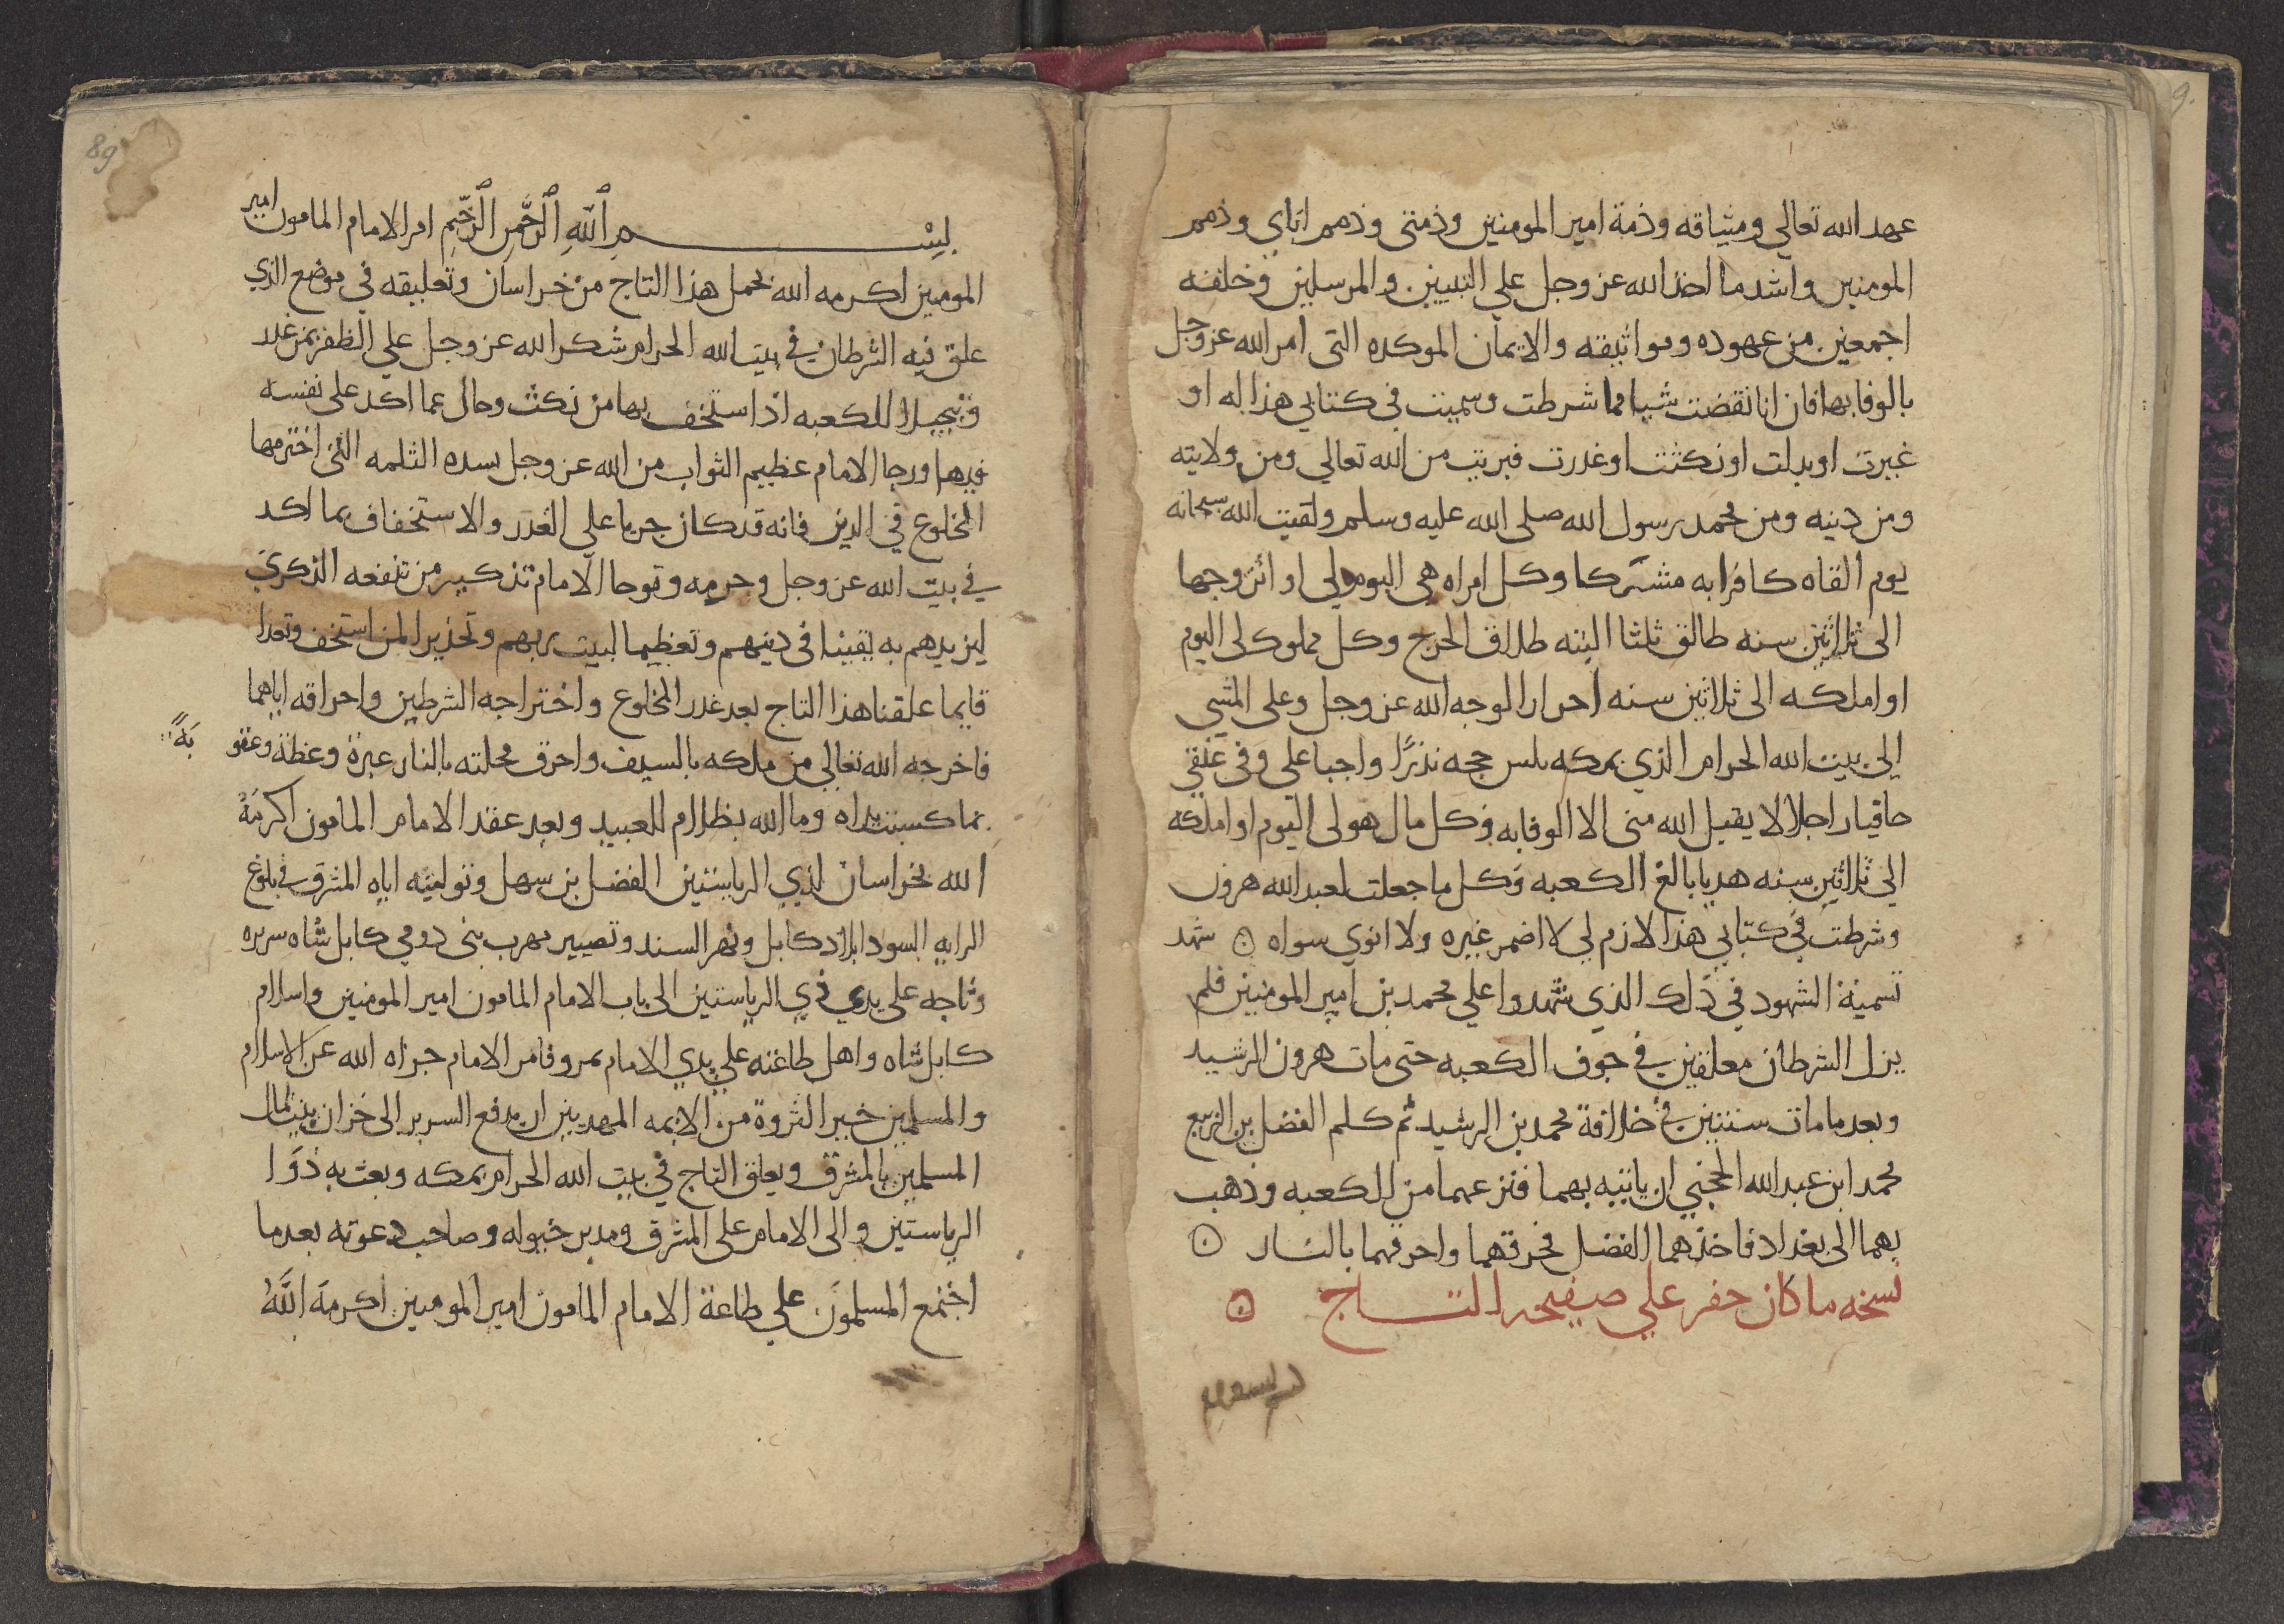 عهد الله تعالي وميثاقه وذمة امير المومنين وذمتى وذمم اباي وذمم
المومنين واشد ما اخذ الله عز وجل علي النبيين والمرسلين وخلقه
اجمعين من عهوده ومواثيقه والايمان الموكده التى امر الله عز وجل
بالوفا بها فان انا نقضت شيا مما شرطت وسميت في كتابي هذا له او
غيرت او بدلت او نكثت او غدرت فبريت من الله تعالي ومن ولايته
ومن دينه ومن محمد رسول الله صلى الله عليه وسلم ولقيت الله سبحانه
يوم القاه كافرا به مشركا وكل امراه هى اليوم لي او اتزوجها
الى ثلاثين سنه طالق ثلثا البته طلاق الحرج وكل مملوك لى اليوم
او املكه الى ثلاثين سنه احرار لوجه الله عز وجل وعلى المشي
الى بيت الله الحرام الذي بمكه ىلىىں حجه نذرًا واجبا على وفى عنقي
حافيا راجلا لا يقبل الله منى الا الوفا به وكل مال هو لى اليوم او املكه
الي ثلاثين سنه هديا بالغ الكعبه وكل ما جعلت لعبد الله هرون
وشرطت في كتابي هذا لازم لي لا اضمر غيره ولا انوي سواه ۞ شهد
تسمية الشهود في ذلك الذي شهدوا علي محمد بن امير المومنين فلم
يزل الشرطان معلقين في جوف الكعبه حتى مات هرون الرشيد
وبعد ما مات سنتين في خلافة محمد بن الرشيد ثم كلم الفضل بن الربيع
محمد ابن عبد الله الحجبي ان ياتيه بهما فنزعهما من الكعبه وذهب
بهما الى بغداد فاخذهما الفضل فخرقهما واحرقهما بالنار ۞
نسخه ما كان حفر علي صفيحه التاج ۞
بسم الله الرحمن الرحيم امر الامام المامون امير
المومنين اكرمه الله بحمل هذا التاج من خراسان وتعليقه في موضع الذي
علق فيه الشرطان في بيت الله الحرام شكر الله عز وجل علي الظفر بمن غدر
وتبجيلا للكعبه اذ استخف بها من نكث وحال عما اكد على نفسه
فيها ورجا الامام عظيم الثواب من الله عز وجل بسده الثلمه التى اخترمها
المخلوع في الدين فانه قد كان جريا علي الغدر والاستخفاف بما اكد
في بيت الله عز وجل وحرمه وتوحا الامام تذكير من تنفعه الذكرى
ليزيدهم به يقينا في دينهم وتعظيما لبيت ربهم وتحذيرا لمن استخف وتعدا
فانما علقنا هذا التاج بعد غدر المخلوع واختراجه الشرطين واحراقه اياهما
فاخرجه الله تعالي من ملكه بالسيف واحرق محلته بالنار عبرة وعظة وعقوبةً
بما كسبت يداه وما الله بظلام للعبيد وبعد عقد الامام المامون اكرمهُ
الله بخراسان لذي الرياستين الفضل بن سهل وتوليته اياه المشرق في بلوغ
الرايه السودا بلاد كابل ونهر السند وتصيير مهرب بنى دومي كابل شاه سريره
وتاجه على يدي ذي الرياستين الى باب الامام المامون امير المومنين واسلام
كابل شاه واهل طاعته علي يدي الامام بمرو فامر الامام جزاه الله عن الاسلام
والمسلمين خير الثروة من الايمه المهديين ان يدفع السرير الى خزان بيت مال
المسلمين بالمشرق ويعلق التاج في بيت الله الحرام بمكه وبعث به ذوا
الرياستين والى الامام على المشرق ومدبر خيوله وصاحب دعوته بعد ما
اجتمع المسلمون علي طاعة الامام المامون امير المومنين اكرمه اللهُ
89